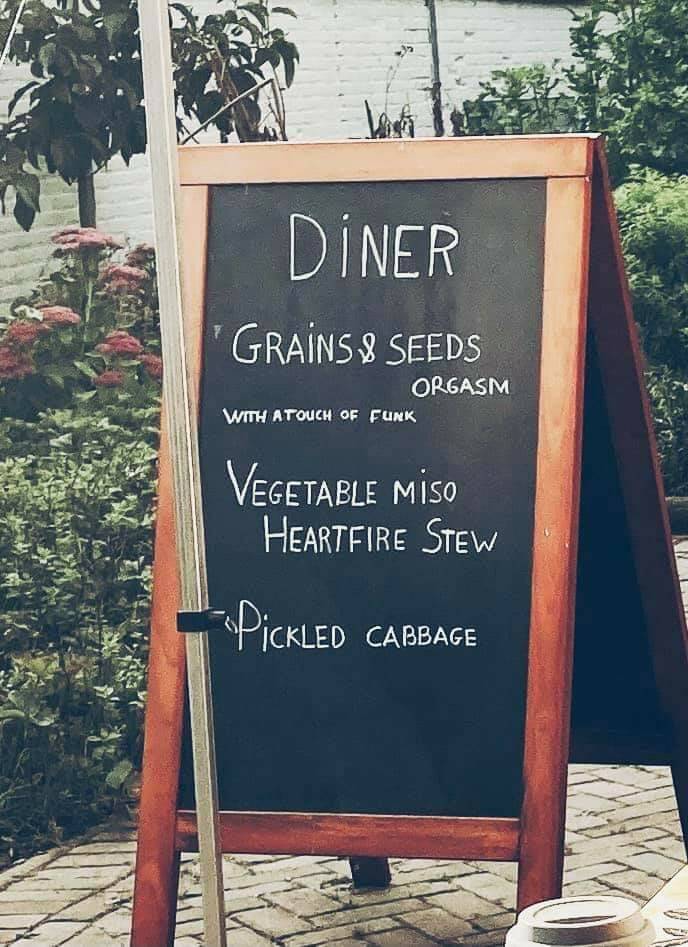 DINER
GRAINS & SEEDS
ORGASM
WITH A TOUCH OF FUNK
VEGETABLE MISO
HEARTFIRE STEW
PICKLED CABBAGE